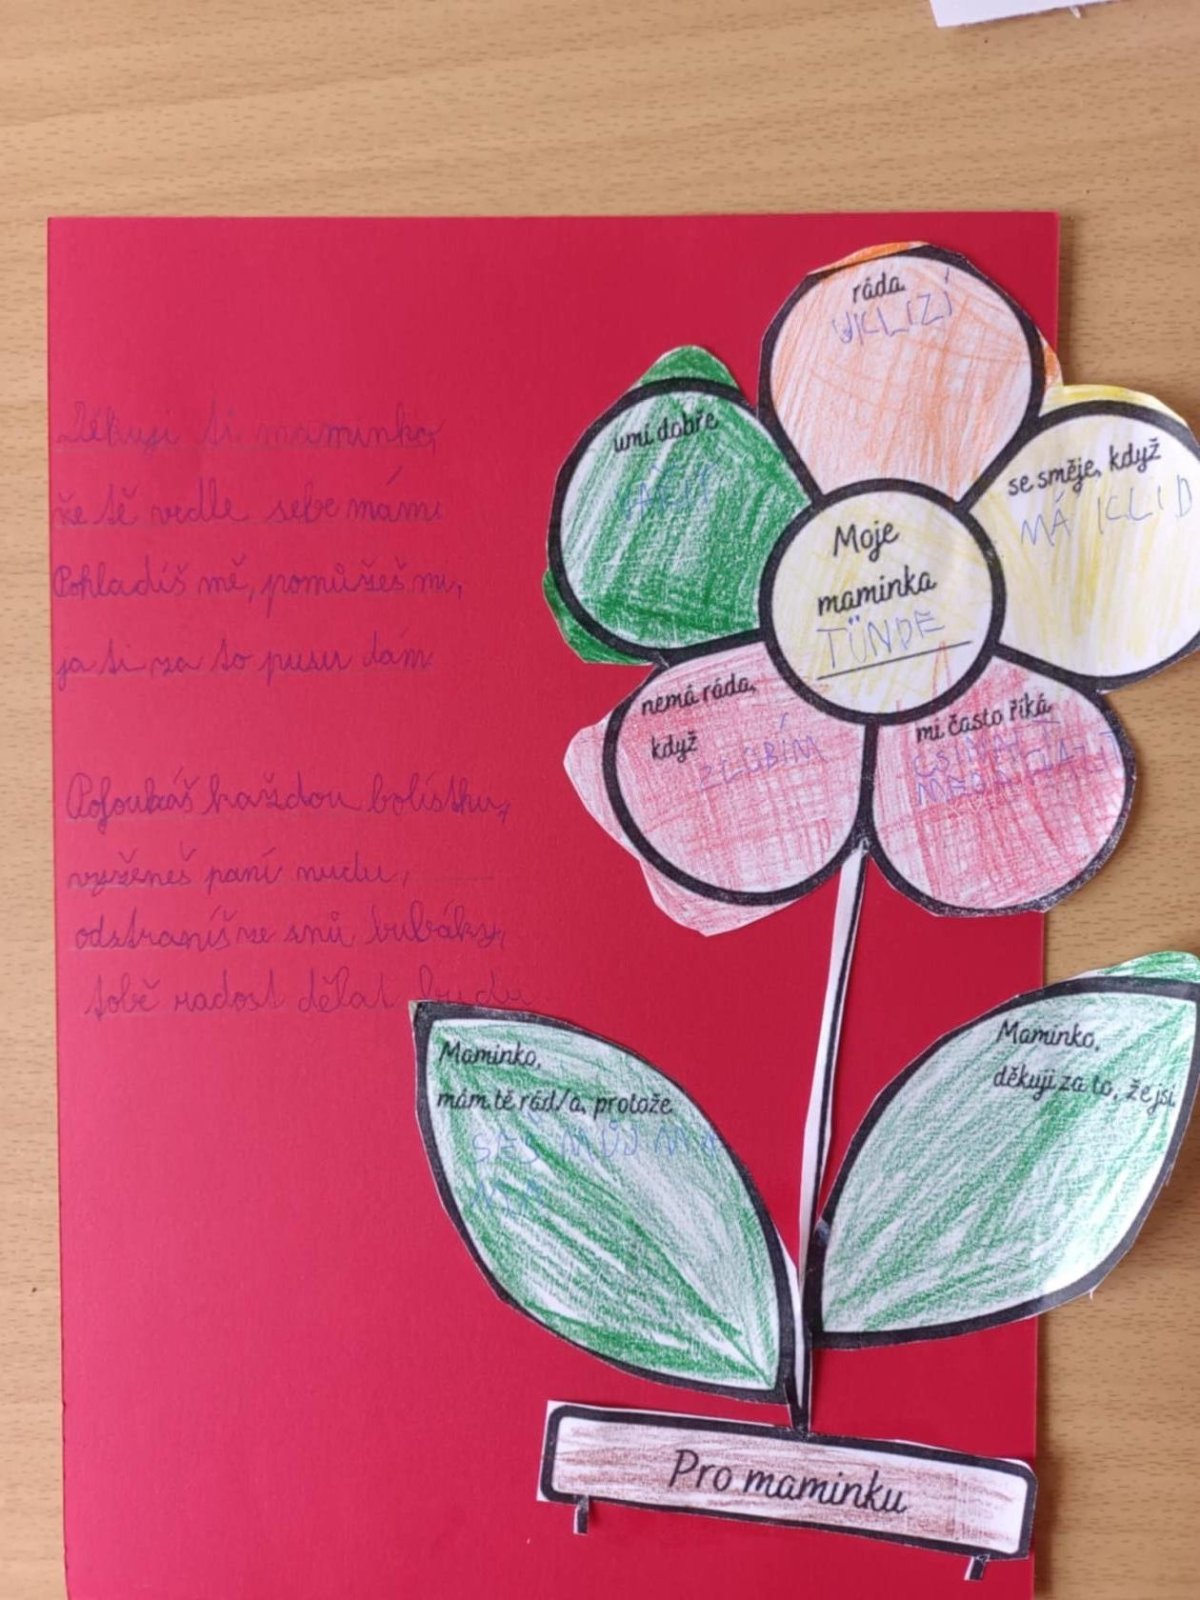 Děkuji ti maminko,
že tě vedle sebe mám.
Pohladíš mě, pomůžeš mi,
ja ti za to pusu dám
Pofoukáš každou bolístku,
vyženeš paní nudu,
odstraníš ze snů bubáky,
tobě radost dělat budu
ráda
UKLIZÍ
umí dobře
VAŘIT
se směje, když
MÁ KLID
Moje
maminka
TÜNDE
nemá ráda,
když
ZLOBÍM
mi často říká
Maminko,
mám tě rád/a, protože
SEŠ MŮJ
Maminko,
děkuji za to, že jsi
Pro maminku